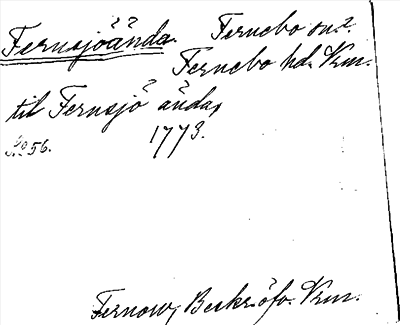 Fernsjöända. Fernebo sn?.
Fernebo hd. Vrm.
til Fernsjö ända,
1773.
S. 56.
Fernow, Beskr. öfv. Vrm.